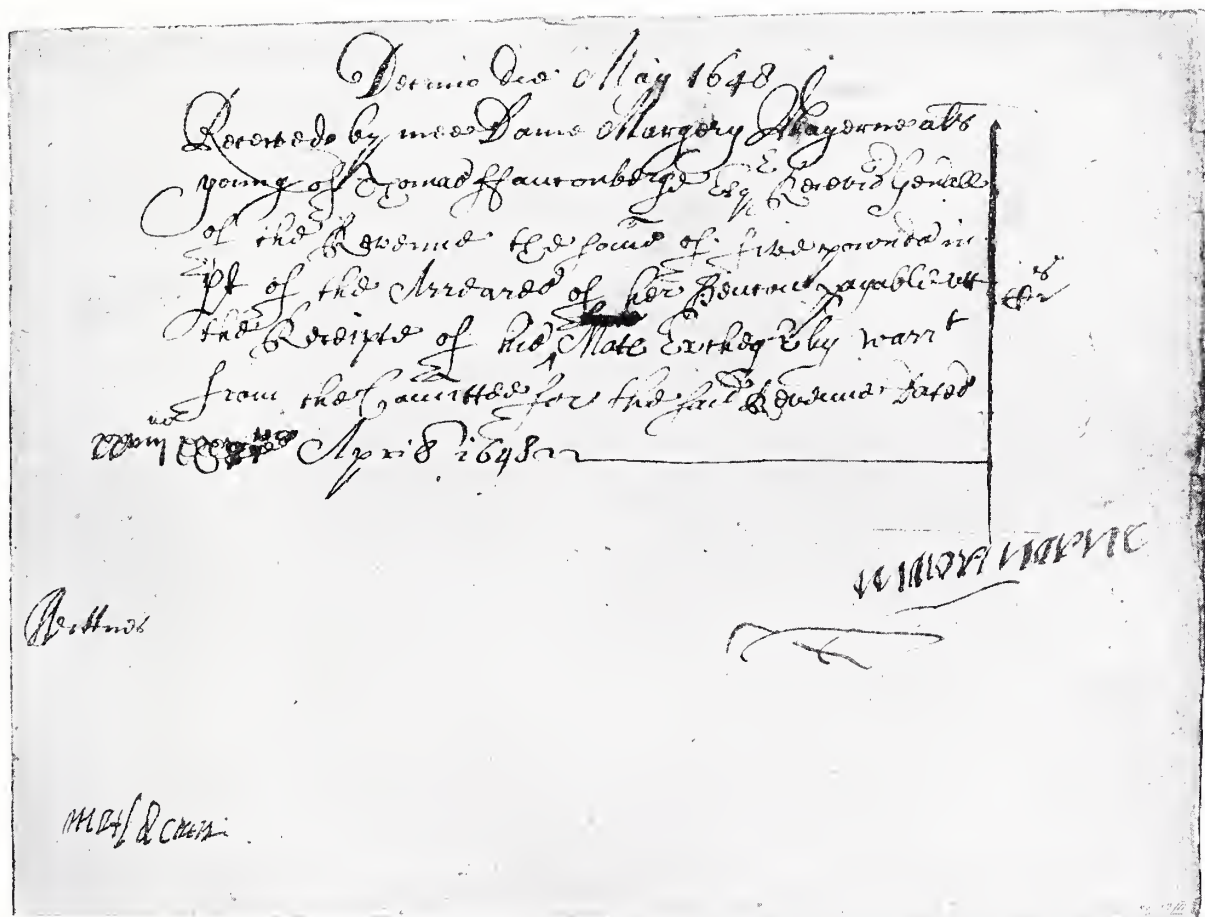 Decimo die May 1648
Received by mee Dame Margery Mayerne als
young of Thomas ffauconberge Esqr Receivor Genall
of the Revenue the some of five pounds in
pt of the Arreares of her Pencon payable att
the Receipte of his Mats Excheqr by warrt
from the Comittee for the said Revenue dated
xxviijno April 1648
Wittnes